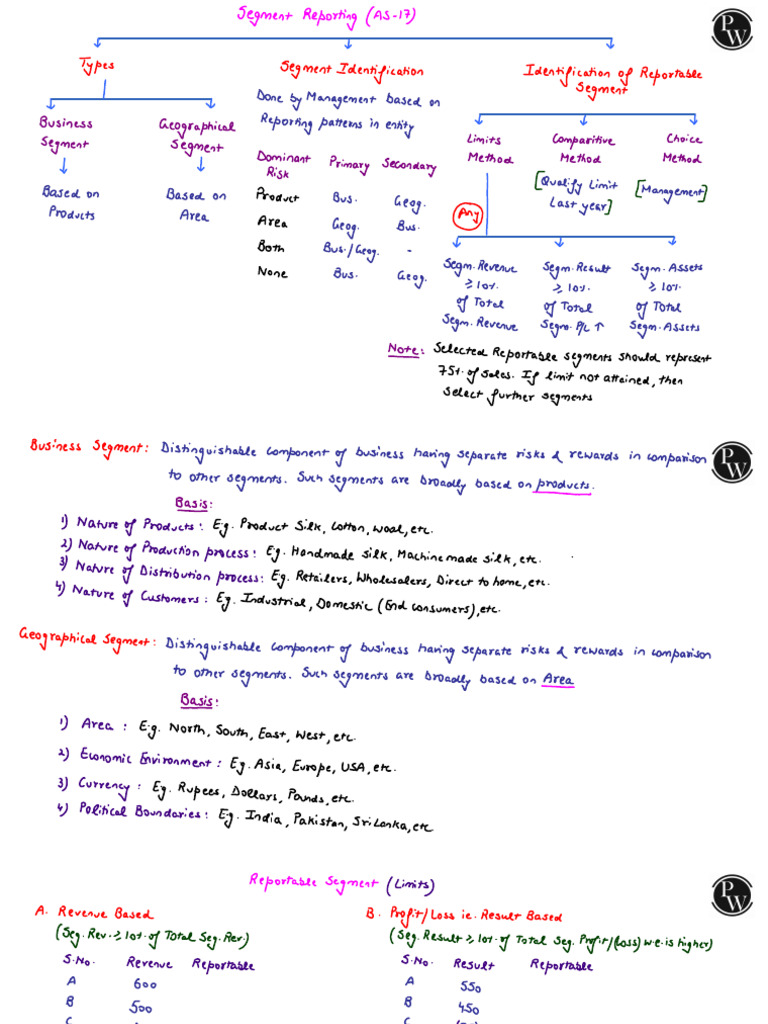 Segment Reporting (AS-17)
PW
Types
Segment Identification
Identification of Reportable
Segment
Business
Segment
Geographical
Segment
Based on
Products
Based on
Area
Done by Management based on
Reporting patterns in entity
Dominant Risk Primary Secondary
Product Bus. Geog.
Area Geog. Bus.
Both Bus./Geog. -
None Bus. Geog.
Limits
Method
Comparitive
Method
[Qualify Limit
Last year]
Choice
Method
[Management]
Any
Segm. Revenue
≥ 10%
of Total
Segm. Revenue
Segm. Result
≥ 10%
of Total
Segm. P/L ↑
Segm. Assets
≥ 10%
of Total
Segm. Assets
Note: Selected Reportable segments should represent
75% of sales. If limit not attained, then
select further segments
PW
Business Segment: Distinguishable component of business having separate risks & rewards in comparison
to other segments. Such segments are broadly based on products.
Basis:
1) Nature of Products: Eg. Product Silk, Cotton, Wool, etc.
2) Nature of Production process: Eg. Handmade silk, Machine made silk, etc.
3) Nature of Distribution process: Eg. Retailers, Wholesalers, Direct to home, etc.
4) Nature of Customers: Eg. Industrial, Domestic (End consumers), etc.
Geographical Segment: Distinguishable component of business having separate risks & rewards in comparison
to other segments. Such segments are broadly based on Area
Basis:
1) Area : E.g. North, South, East, West, etc.
2) Economic Environment : Eg. Asia, Europe, USA, etc.
3) Currency : Eg. Rupees, Dollars, Pounds, etc.
4) Political Boundaries : E.g. India, Pakistan, Sri Lanka, etc
Reportable Segment (Limits)
PW
A. Revenue Based
(Seg. Rev. ≥ 10% of Total Seg. Rev.)
S.No. Revenue Reportable
A 600
B 500
C
B. Profit/Loss ie. Result Based
(Seg. Result ≥ 10% of Total Seg. Profit/(Loss) w.e. is higher)
S.No. Result Reportable
A 550
B 450